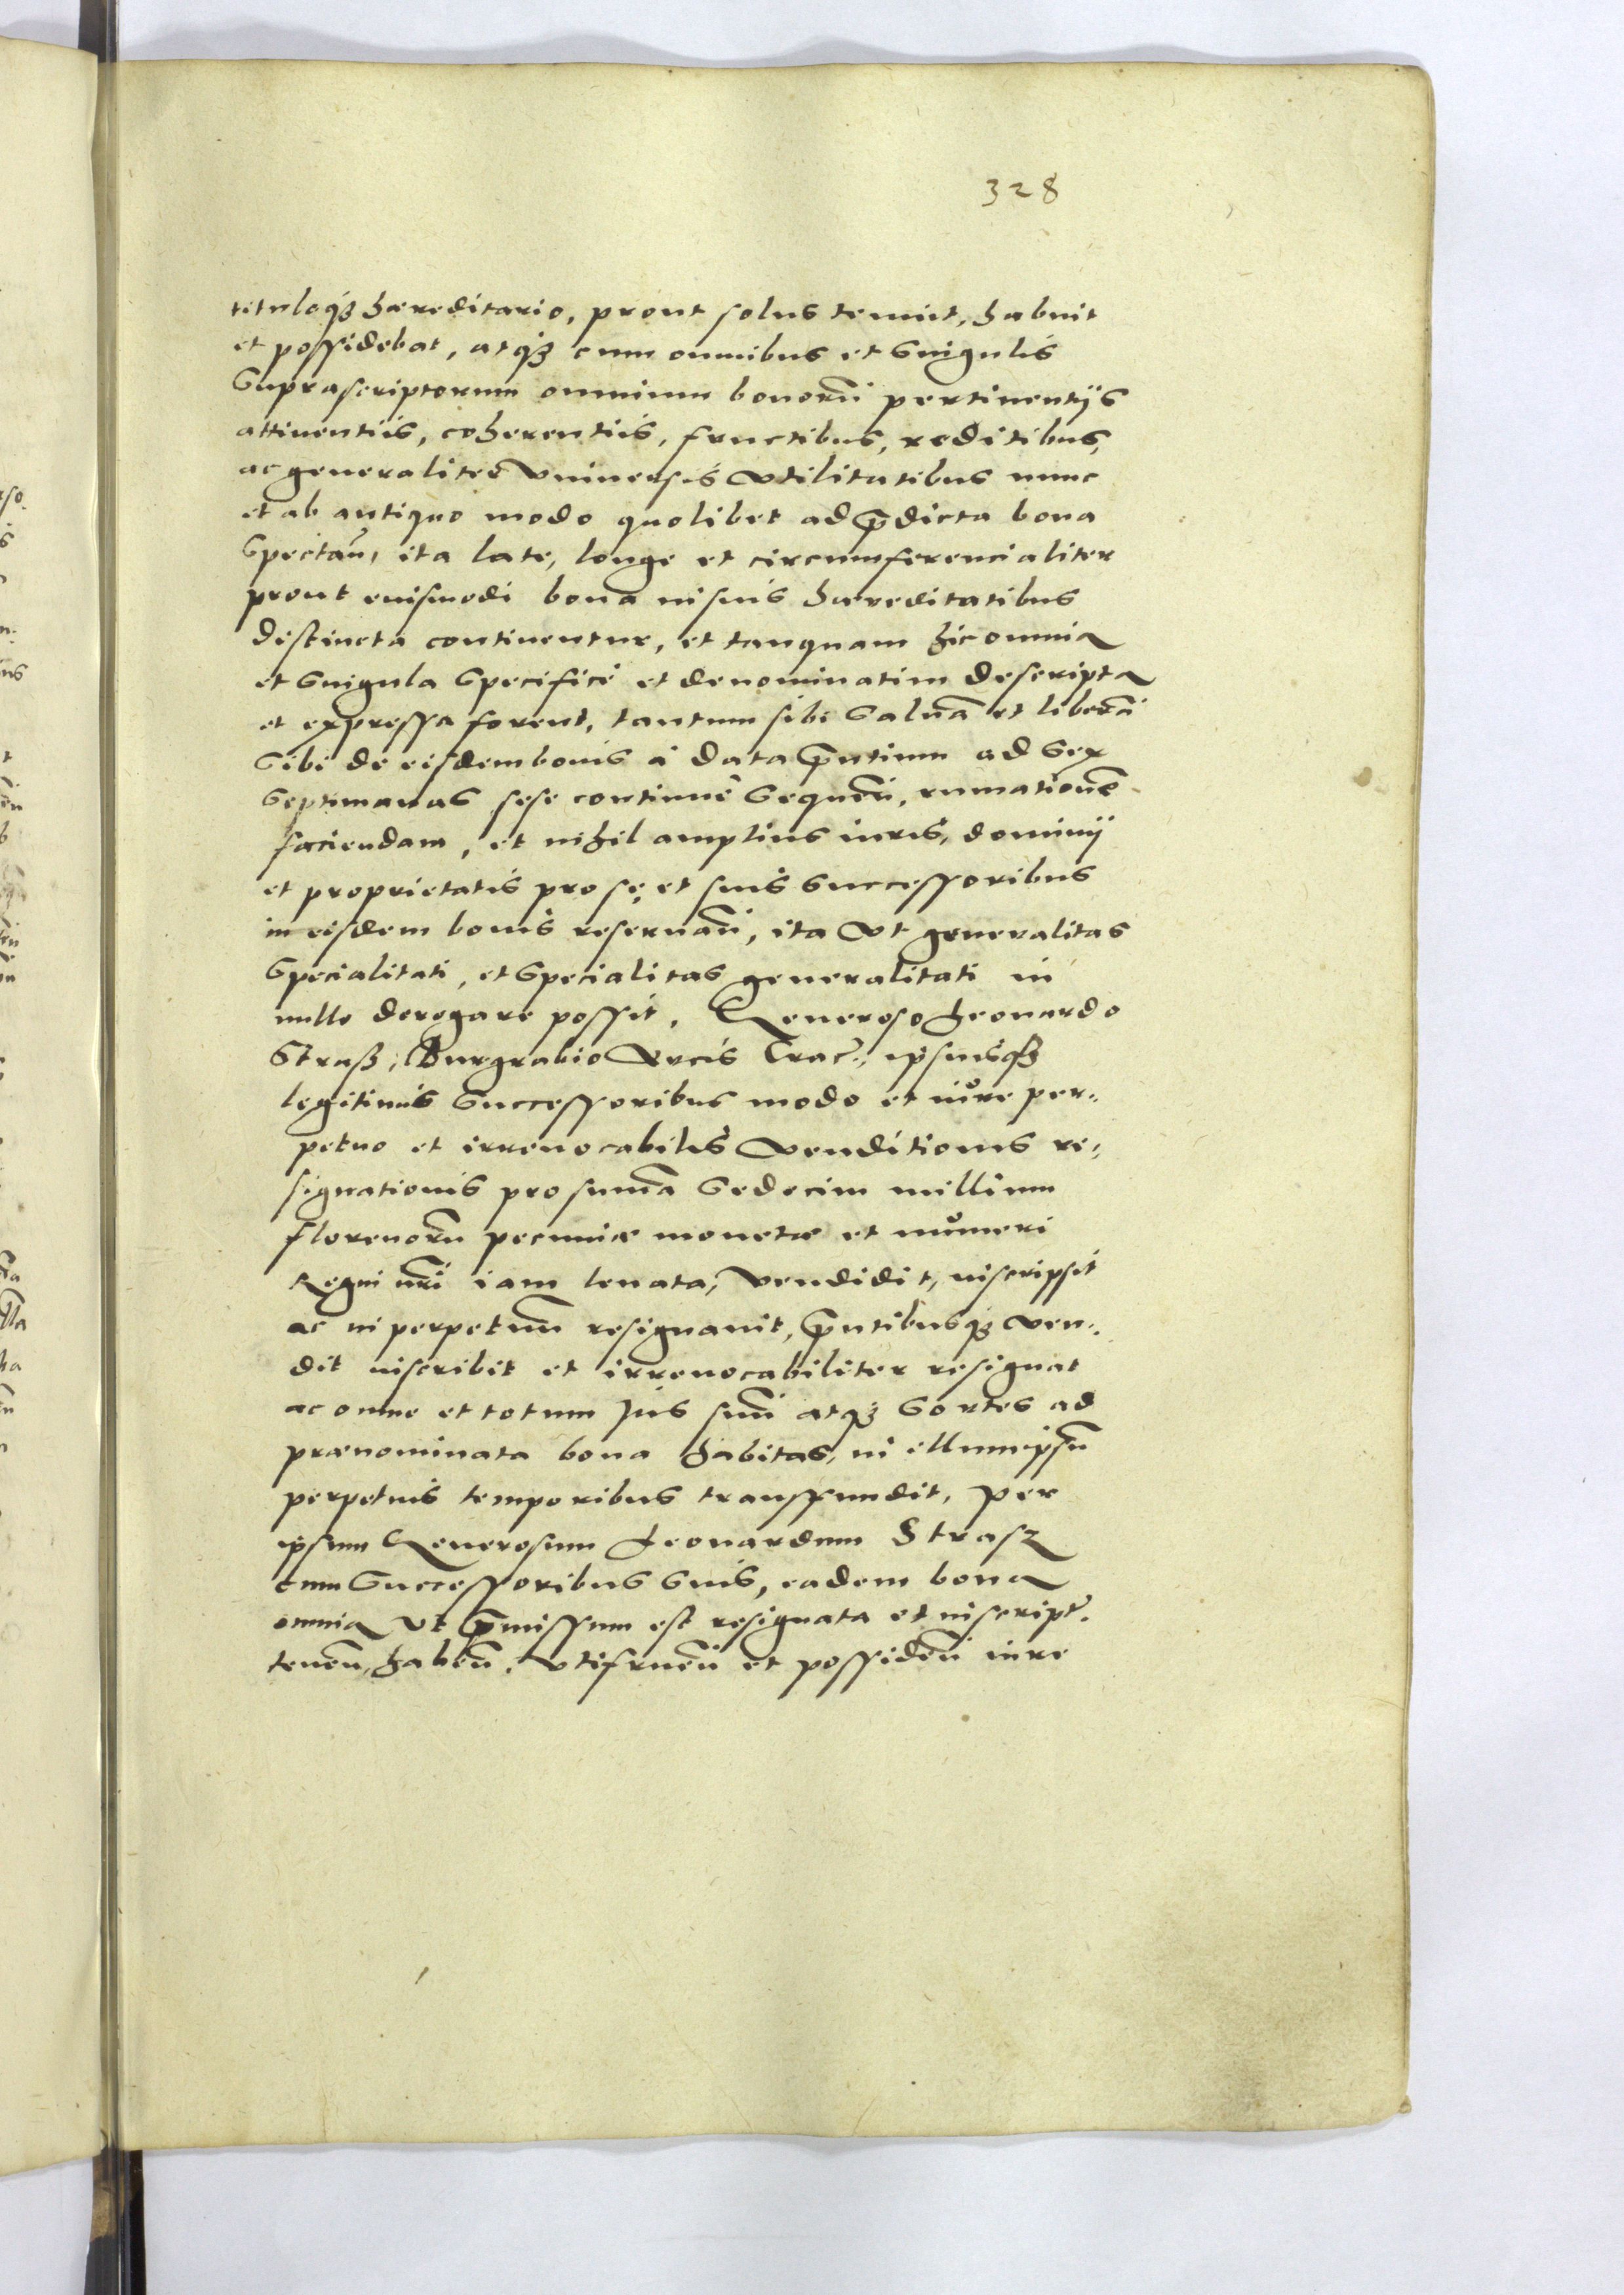 328
tituloqȝ hæreditario, prout solus tenuit, habuit
et possidebat, atqȝ cum omnibus et singulis
suprascriptorum omnium bonorū pertinentijs
attinentiis, coherentiis, fructibus, reditibus,
ac generaliter vniuersis vtilitatibus nunc
et ab antiquo modo quolibet ad p̄dicta bona
spectan̄, ita late, longe et circumferencialiter
prout euismodi bona in suis hæreditatibus
distincta continentur, et tanquam hic omnia
et singula specificè et denominatim descripta
et expressa forent, tantum sibi saluā et liberā
sibi de eisdem bonis à data p̄ntium ad sex
septimanas sese continuè sequen̄, rumationē
faciendam, et nihil amplius iuris, dominij
et proprietatis pro se, et suis successoribus
in eisdem bonis reseruan̄, ita vt generalitas
specialitati, et specialitas generalitati in
nullo derogare possit. Generoso Leonardo
Straß, Burgrabio Arcis Crac:, ipsiusqȝ
legitimis successoribus modo et iure per„
petuo et irreuocabilis venditionis re„
signationis pro sum̄a sedecim millium
florenorū pecuniæ monetæ et numeri
Regni nr̄i iam leuata, vendidit, inscripsit
ac in perpetuum resignauit, p̄ntibusqȝ ven„
dit inscribit et irreuocabiliter resignat
ac omne et totum jus suū atqȝ sortes ad
prænominata bona habitas, in illum ipsū
perpetuis temporibus transfundit, per
ipsum Generosum Leonardum Strasz
cum successoribus suis, eadem bona
omnia vt p̄missum est resignata et inscript:
tenen̄, haben̄, vtifruen̄ et possiden̄ iure